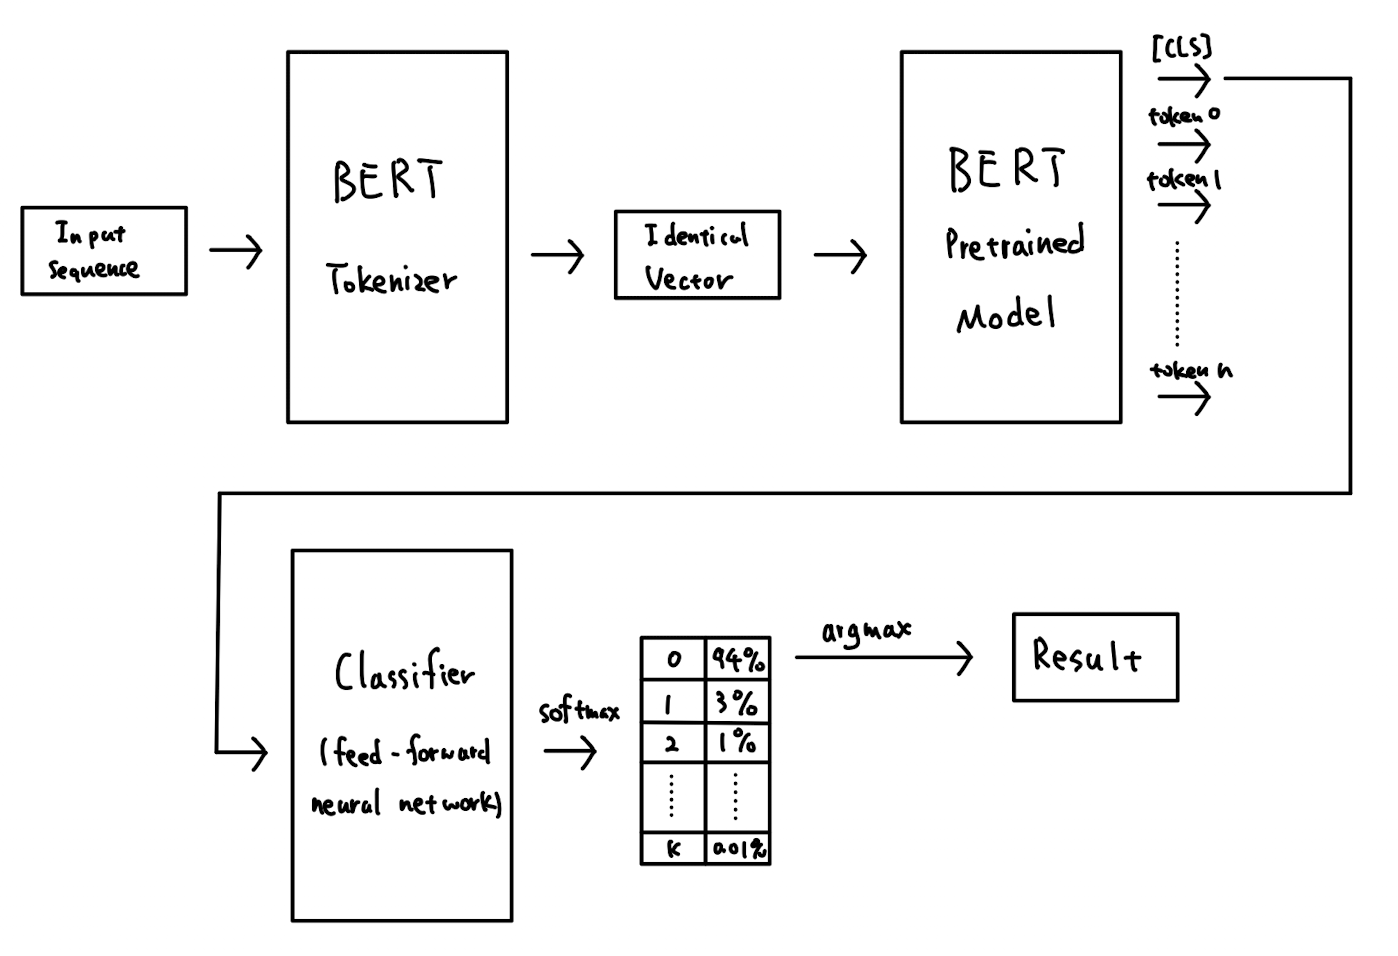 Input
Sequence
BERT
Tokenizer
Identical
Vector
BERT
Pretrained
Model
[CLS]
token 0
token 1
token n
Classifier
(feed-forward
neural network)
softmax
0 94%
1 3%
2 1%
K 0.01%
argmax
Result